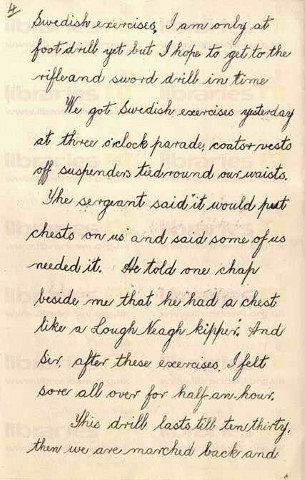 4
Swedish exercises. I am only at
foot drill yet but I hope to get to the
rifle and sword drill in time
We got Swedish exercises yesterday
at three o'clock parade, coat or vests
off suspenders tied round our waists.
The sergeant said "it would put
chests on us" and said some of us
needed it. He told one chap
beside me that he "had a chest
like a Lough Neagh kipper". And
Sir, after these exercises, I felt
sore all over for half an hour.
This drill lasts till ten thirty,
then we are marched back and